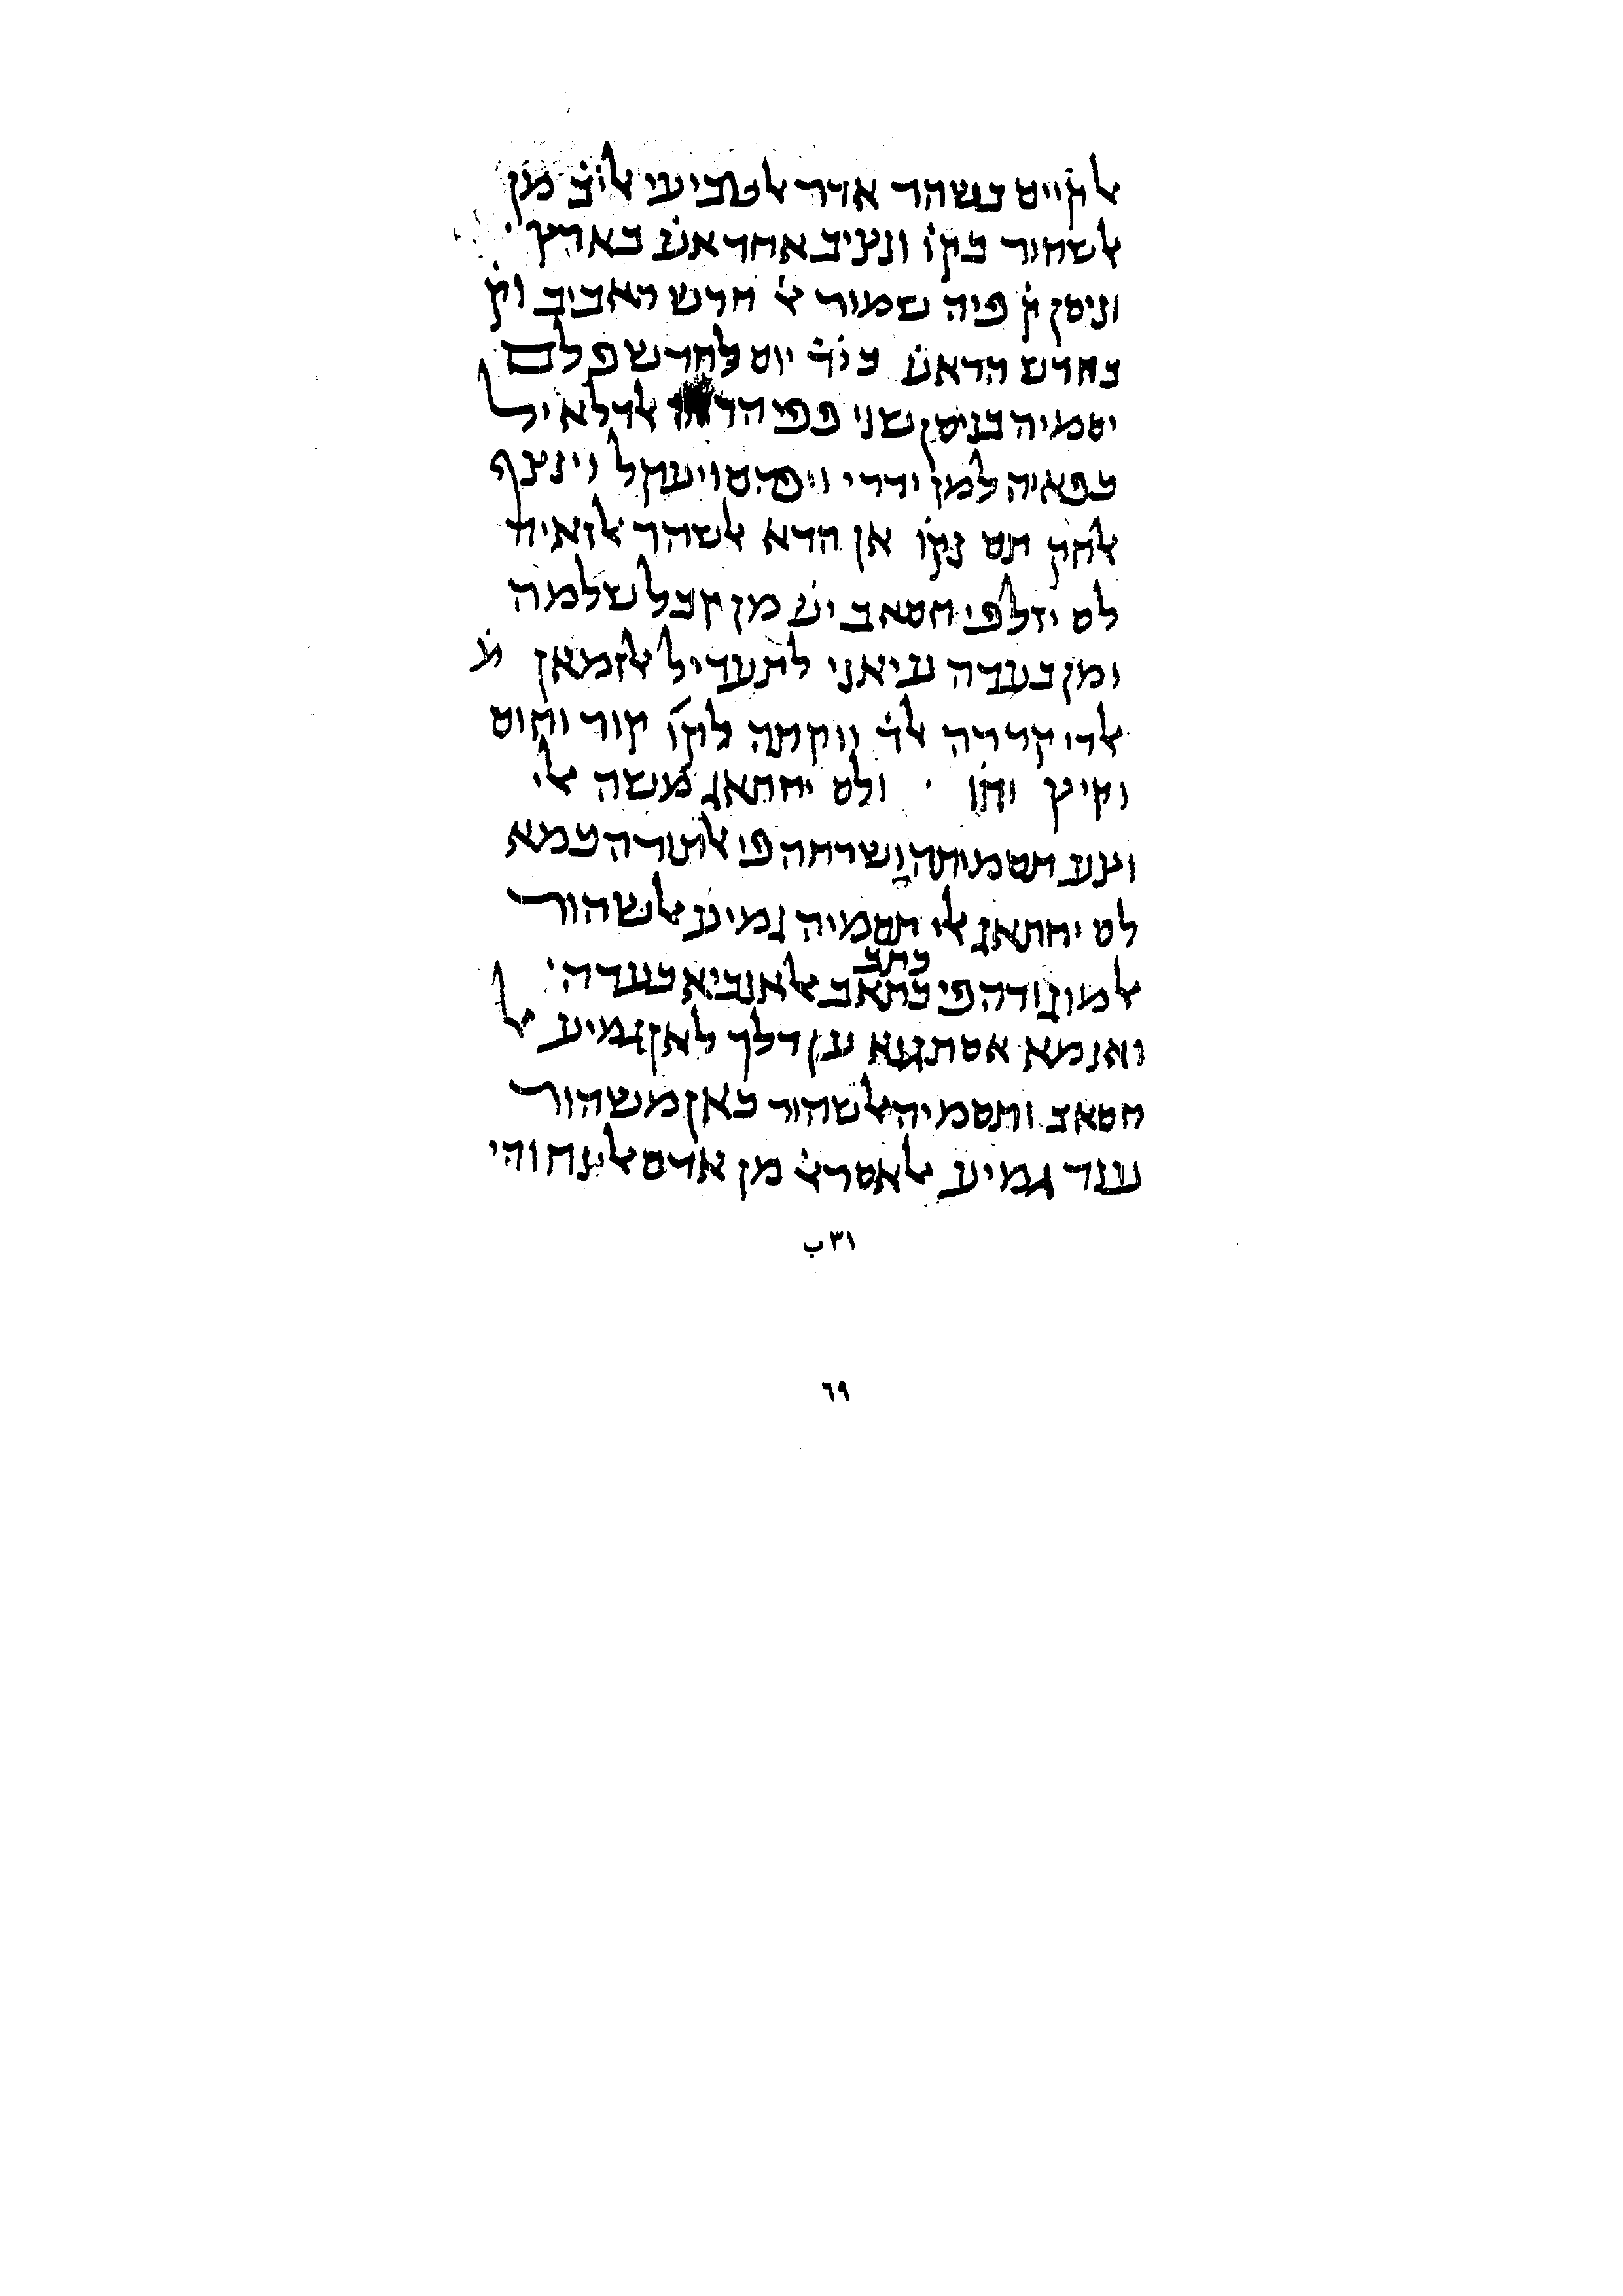 אלקיים בשהר אדר אלטביעי אלי̇ב̇ מן
אלשהור בק̇ו̇ ונציב אחר אש̇ בארץ
וניסן ק̇ פיה שמור א̇ל̇ חדש האביב וק̇
בחדש הראש̇ בי̇ד̇ יום לחדש פלם
יסמיה בניסן שני פפי הדא אלדלאיל
כפאיה למן ידרי ויפהם ויעקל וינצף
אלחק תם נק̇ו̇ אן הדא אלשהר אלזאיד
לם יזל פי חסאב יש̇ מן קבל שלמה
ומן בעדה עיאני לתעדיל אלזמאן
אלדי קררה אל̇ד̇ ווקתה לק̇ו̇ קור וחום
וקיץ וח̇ו̇ ולם יחתאג משה אלי
וצע תסמיתה ושרחה פי אלתורה כמא
לם יחתאג אלי תסמיה גמיע אלשהור
כתב
אלמוגודה פי כתאב אלאנביא בעדה
ואנמא אסתגנא ען דלך לאן גמיע אל
חסאב ותסמיה אלשהור כאן משהור
ענד גמיע אלאסרא̇ל̇ מן אדם אלענחוהי
٣١ب
٦٩